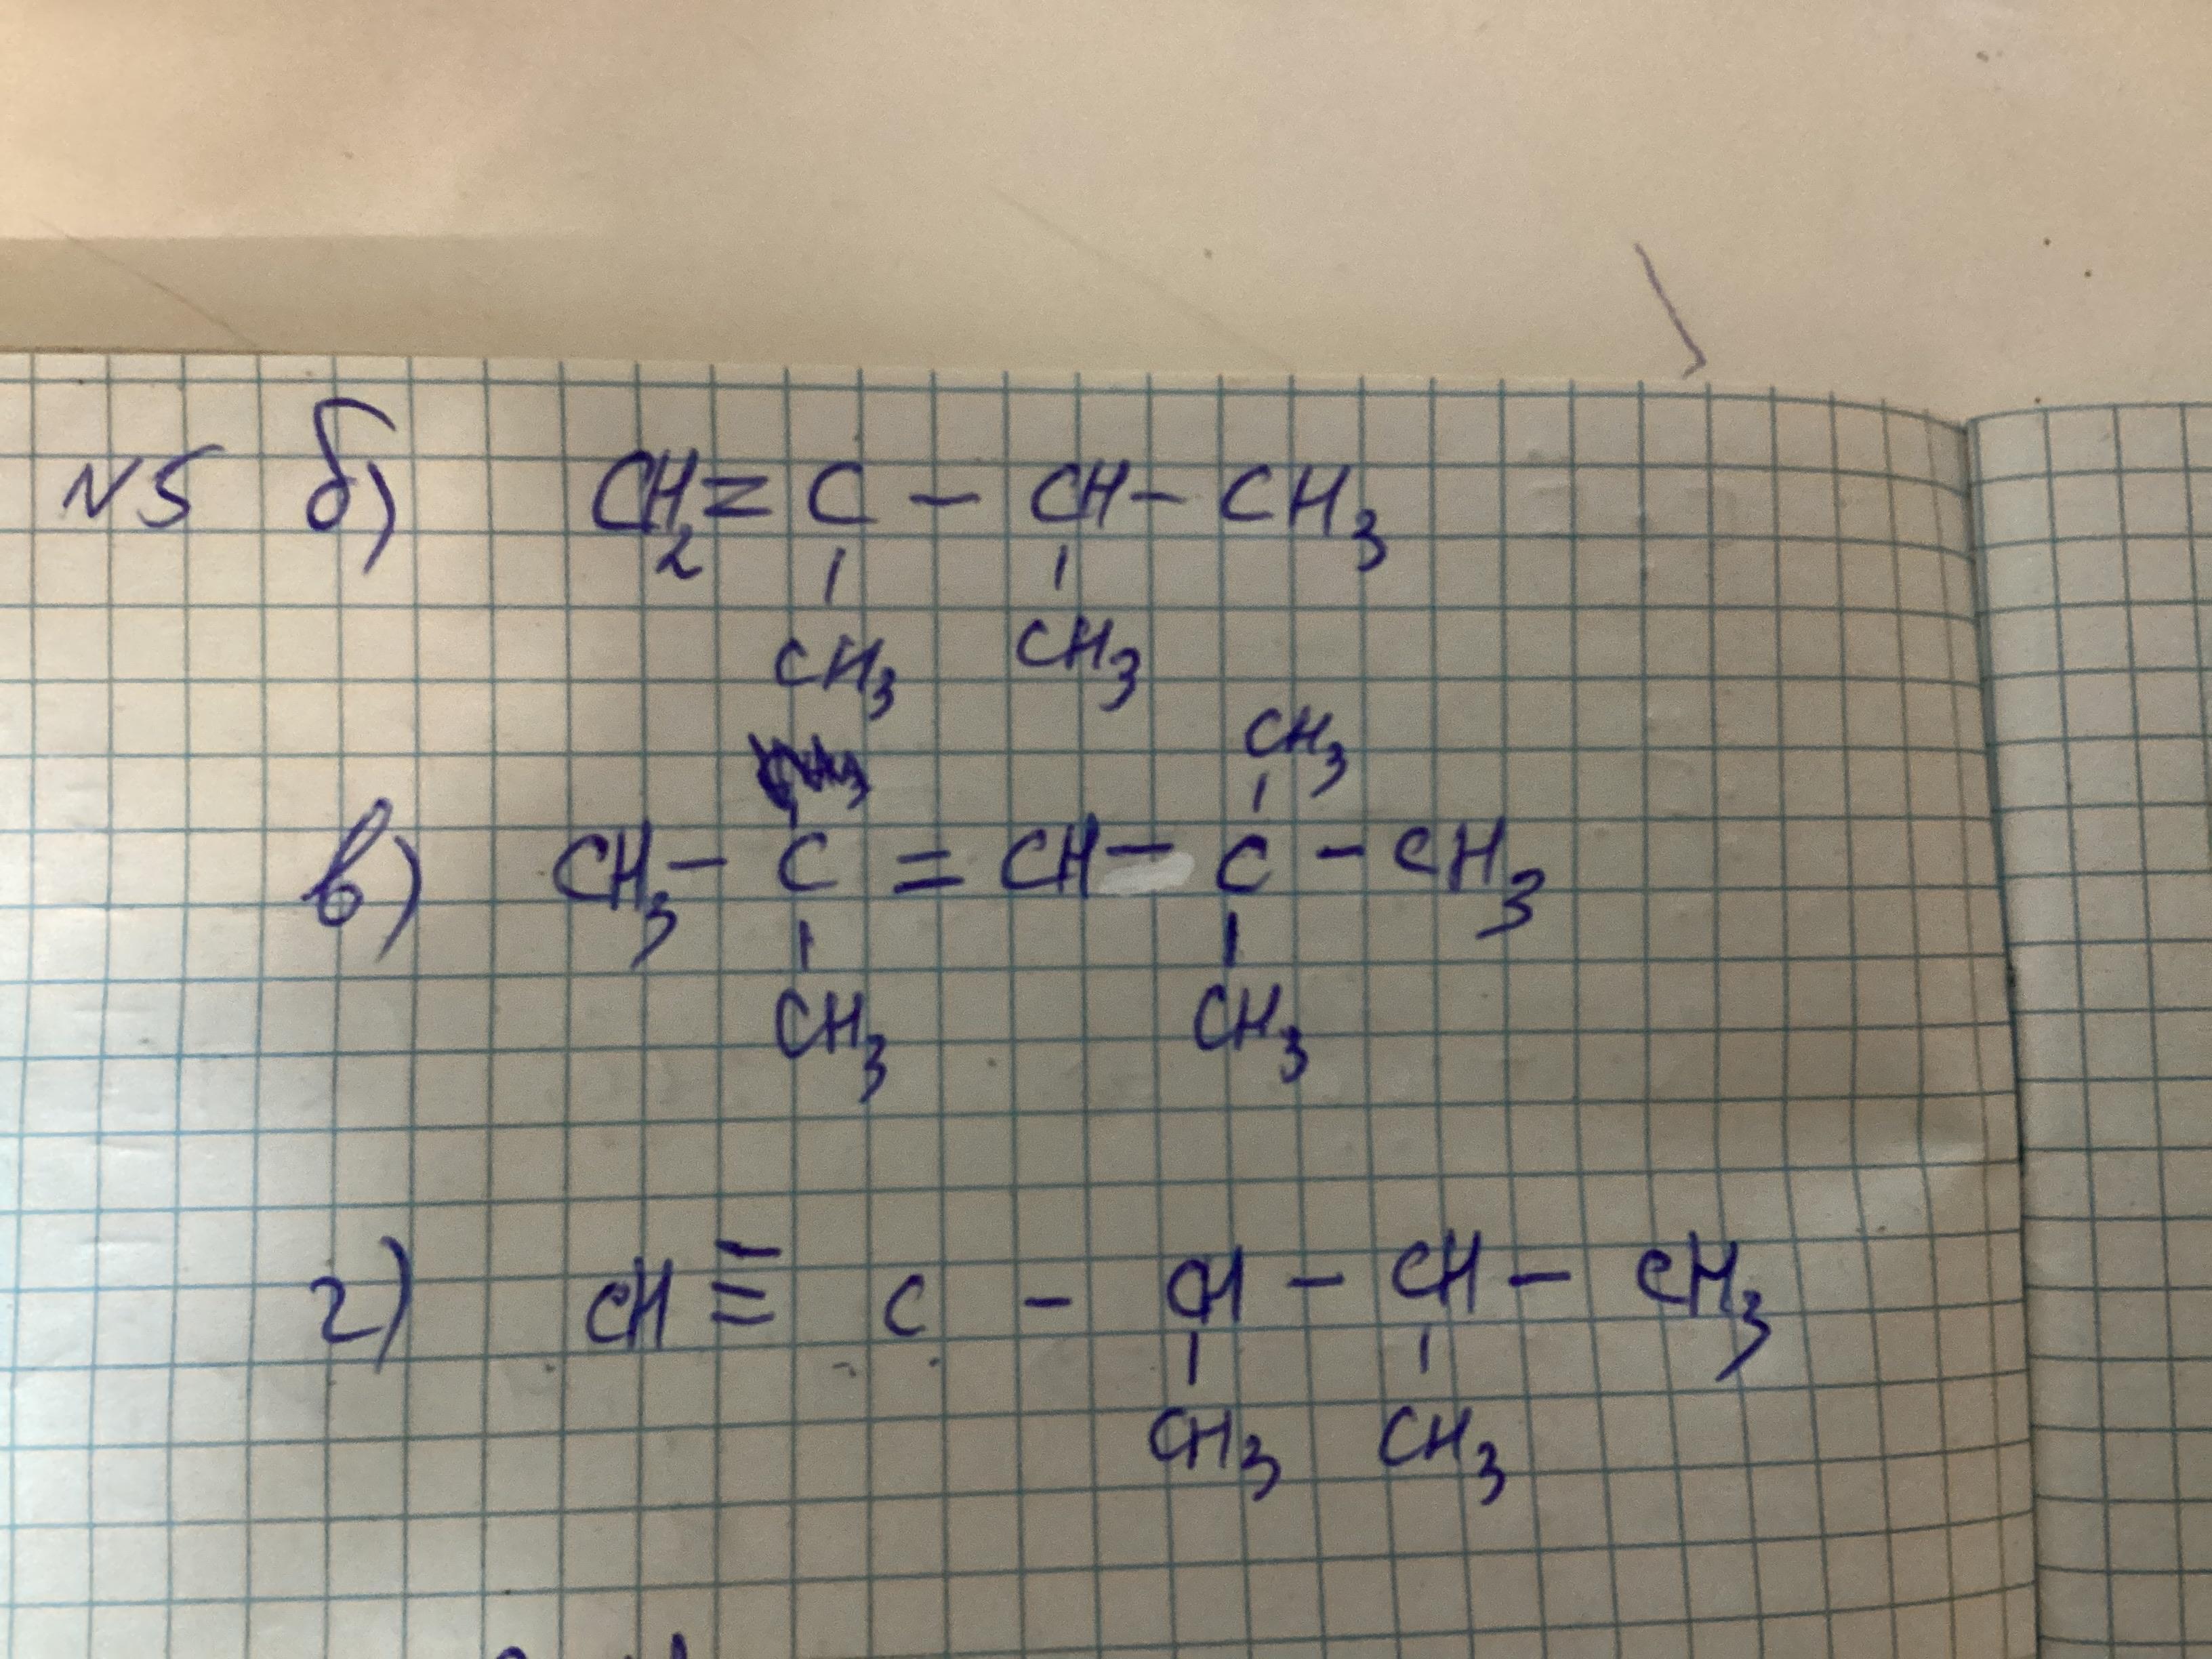 №5 б) CH₂=C-CH-CH₃
CH₃ CH₃
CH₃
в) CH₃-C=CH-C-CH₃
CH₃ CH₃
г) CH≡C-CH-CH-CH₃
CH₃ CH₃